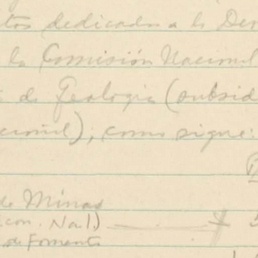 tos dedicados a la Der
la Comisión Nacional
de Geología (subsid
cional), como sigue:
de Minas
con. Nal.)
de Fomento